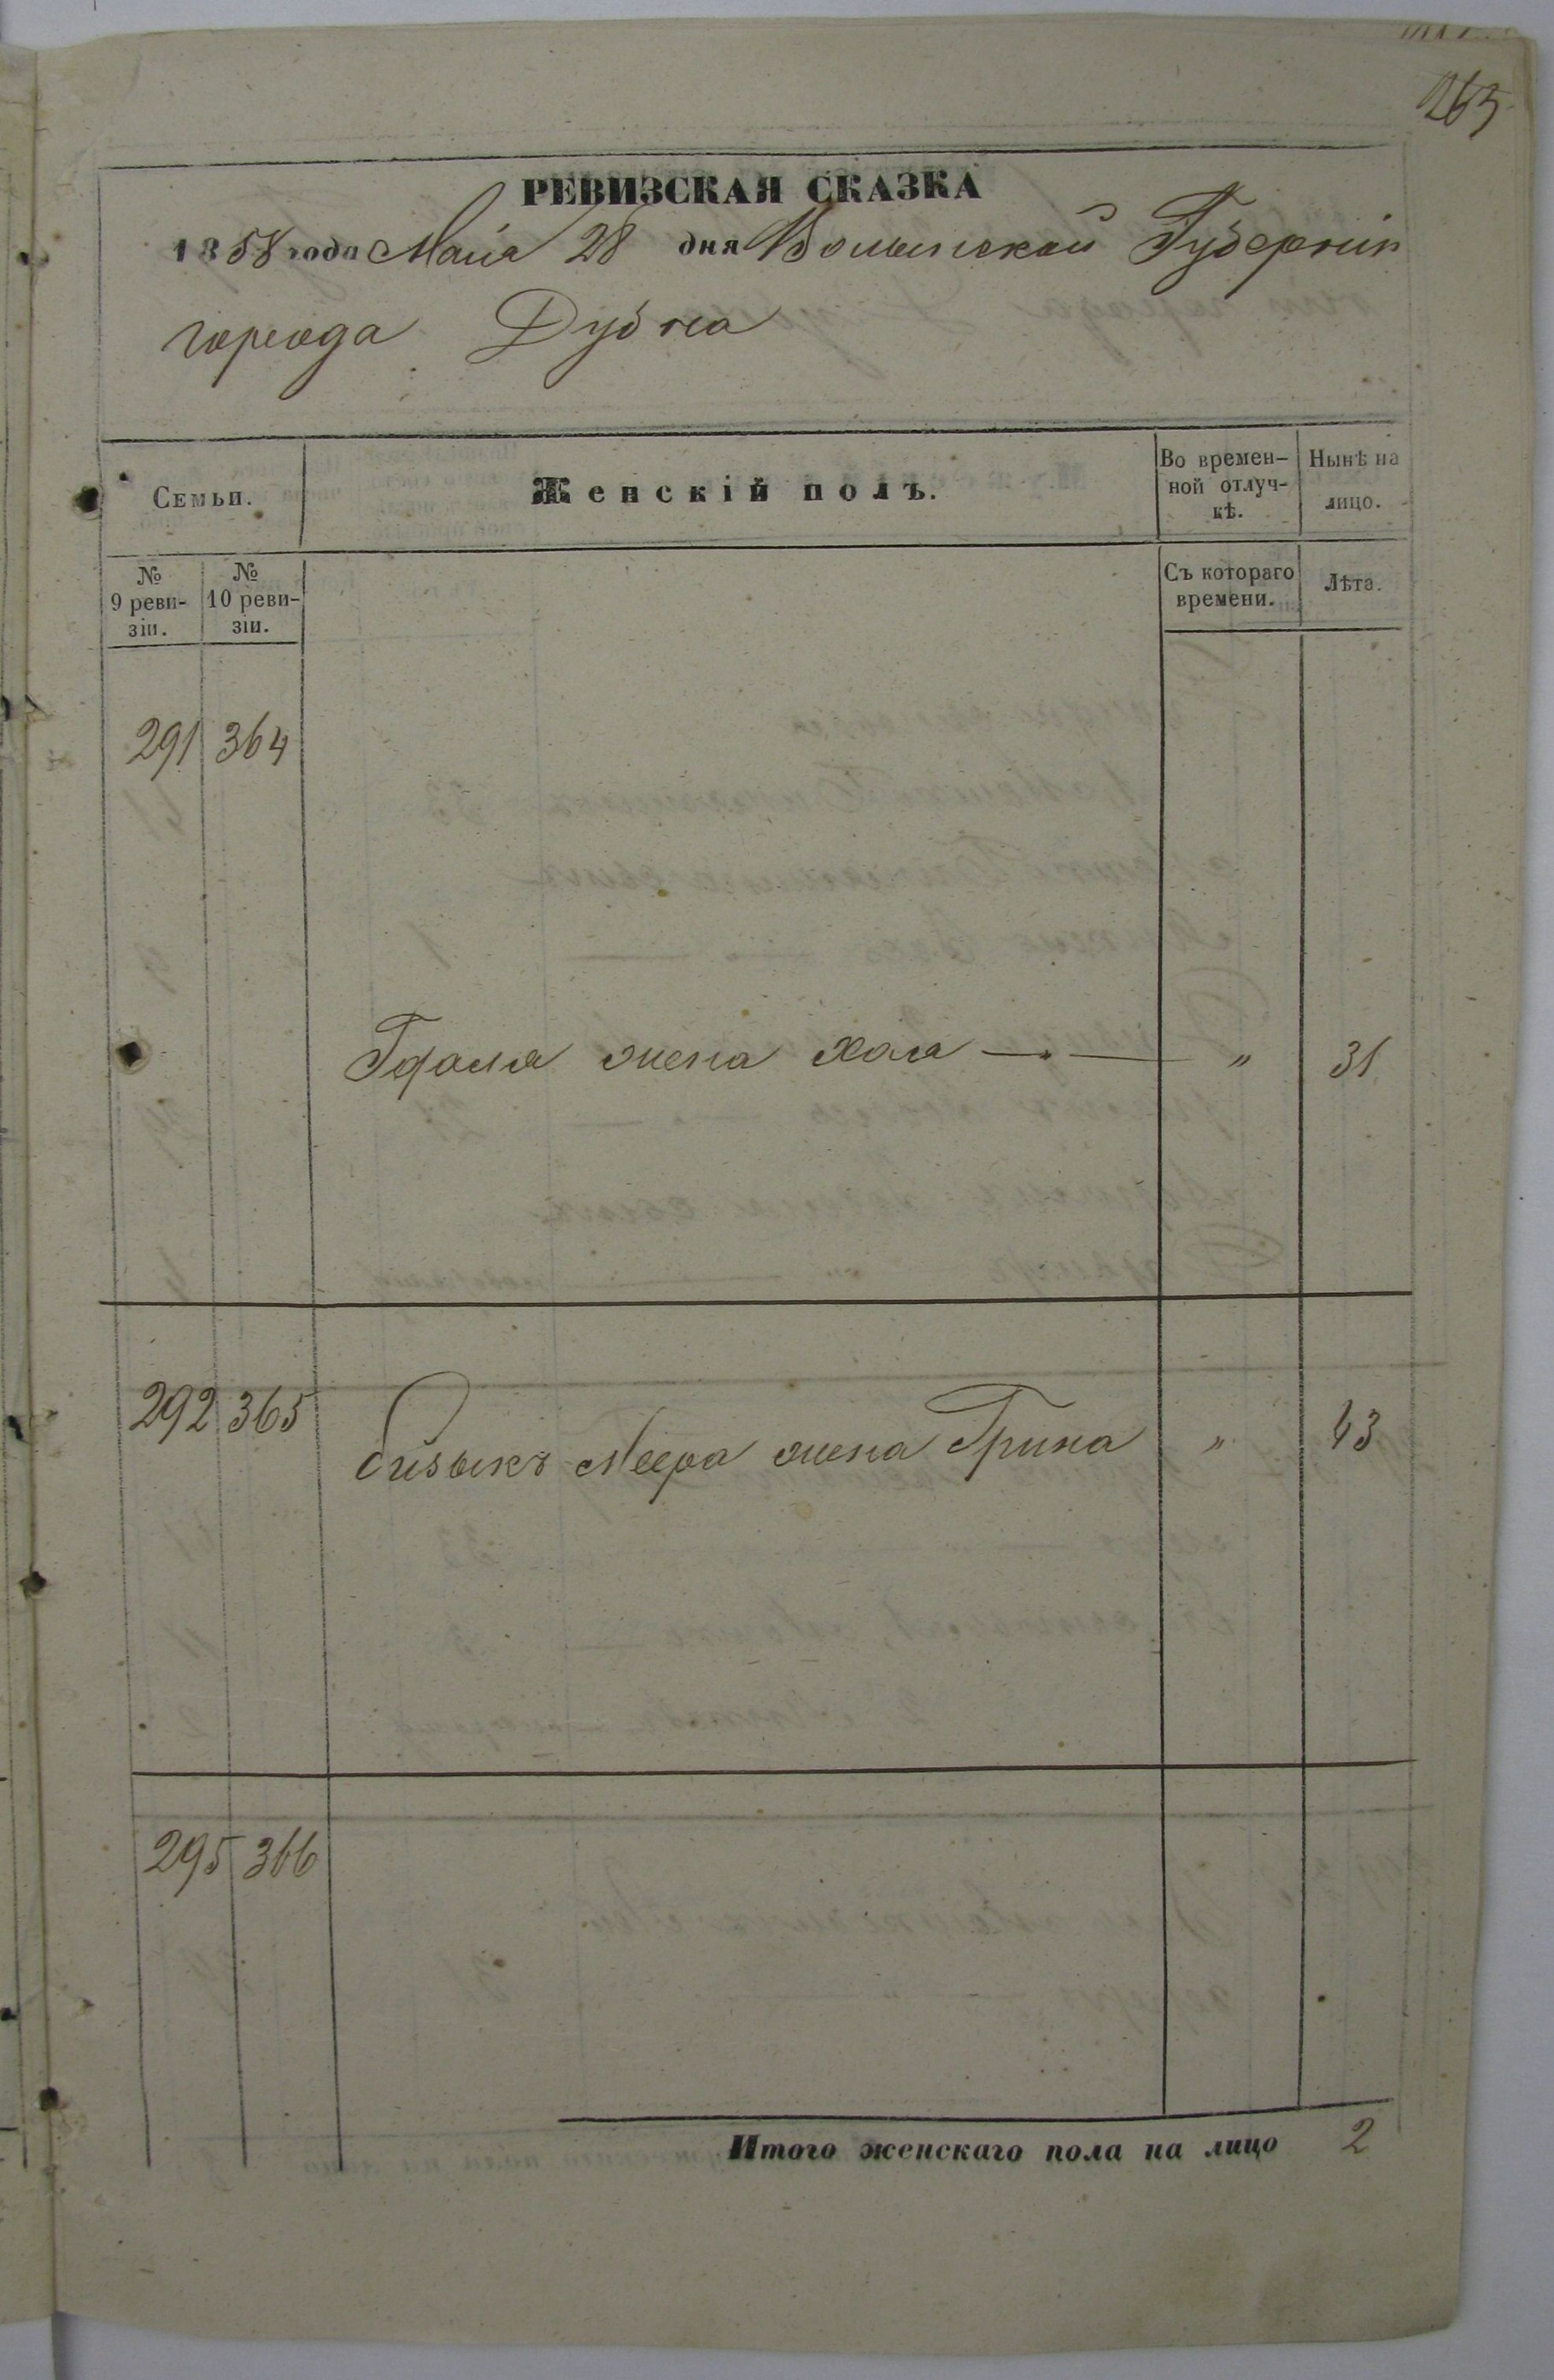 265
РЕВИЗСКАЯ СКАЗКА
1858 года Мaiя 28 дня Волынской Губернiи
города Дубна
Семьи.
Женскiй полъ.
Во времен-
ной отлуч-
кѣ.
Нынѣ на
лицо.
№
9 реви-
зiи.
№
10 реви-
зiи.
Съ котораго
времени.
Лѣта.
291 364
жена Хая — — " 31
292 365 Меера жена Грина " 43
295 366
Итого женскаго пола на лицо 2